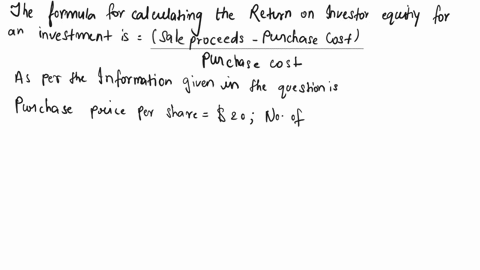 The formula for calculating the Return on Investor equity for
an investment is = (sale proceeds - Purchase Cost)
Purchase cost
As per the Information given in the question is
Purchase price per share = $20; No. of